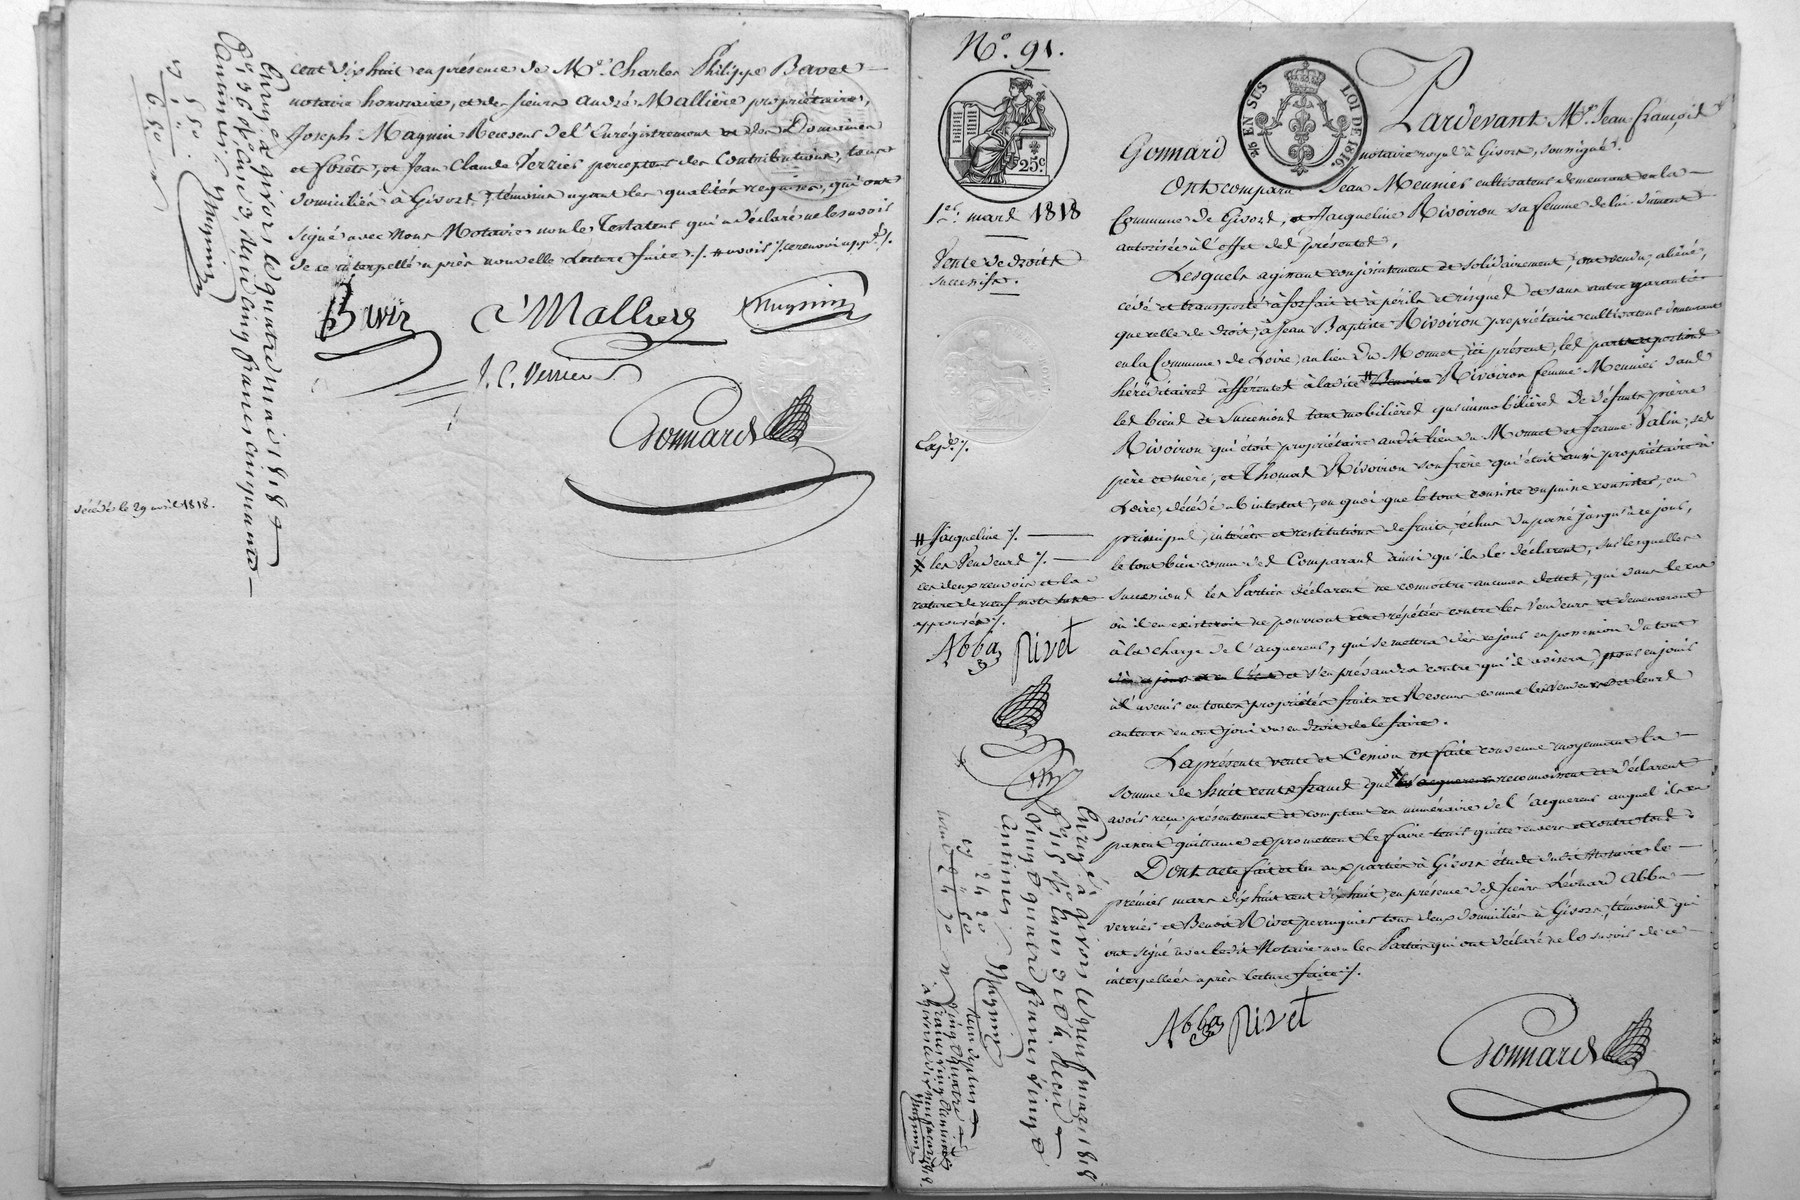 cent dix huit en présence de Me. Charles Philippe Bavet
notaire honoraire, et des sieurs André Mallière propriétaire,
Joseph Magnin Receveur de l'Enrégistrement et des Domaines
et forêts, et Jean Claude Verrier percepteur des Contributions, tous
domiciliés à Givors, témoins ayant les qualités requises, qui ont
signé avec Nous Notaire non le Testateur qui a déclaré ne le savoir
de ce interpellé après nouvelle lecture faite
Mallière
Magnin
J. C. Verrier
Gonnard
décédé le 29 avril 1818.
Enreg. à givors le quatre mai 1818
cinq francs cinquante
centimes. Magnin
5 50
6 50
No. 91.
25c.
EN SUS
LOI DE 1816.
1er. mars 1818
Vente de droits
successifs.
Exp.
# Jacqueline /.
x les Vendeurs /.
les deux renvois et la
rature de neuf mots
approuvés /.
Abba Rivet
Pardevant Me. Jean françois
Gonnard notaire royal à Givors, soussigné.
Ont comparu Jean Meunier cultivateur demeurant en la
Commune de Givors, et Jacqueline Rivoiron sa femme de lui dûment
autorisée à l'effet des présentes,
Lesquels agissant conjointement et solidairement, ont vendu, aliéné,
cédé et transporté à forfait et à périls et risques et sans autre garantie
querelle de droit, à Jean Baptiste Rivoiron propriétaire cultivateur demeurant
en la Commune de Loire, au lieu du Mornet, ici présent, les parts et portions
héréditaires afférentes à la dite # Rivoiron femme Meunier dans
les biens et Successions tant mobilières qu'immobilières de défunts pierre
Rivoiron qui étoit propriétaire audit lieu du Mornet et Jeanne Valin, ses
père et mère, et Thomas Rivoiron son frère qui étoit aussi propriétaire à
Loire, décédé ab intestat, en quoi que le tout consiste ou puisse consister, en
principal, intérêts et restitutions de fruits, échus du passé jusqu'à ce jour,
le tout bien connu des Comparans ainsi qu'ils le déclarent, sur lesquelles
successions les Parties déclarent ne connoitre aucunes dettes, qui dans le cas
où il en existeroit ne pourront être répétées contre les Vendeurs et demeureront
à la charge de l'acquereur, qui se mettra dès ce jour en possession du tout
et s'en prévaudra contre qui il avisera, pour en jouir
à l'avenir en toutes propriétés fruits et Revenus comme les vendeurs et leurs
auteurs en ont joui ou eu droit de le faire.
La présente vente et Cession est faite convenue moyennant la
somme de huit cents francs que x les acquereurs reconnoissent et déclarent
avoir reçu présentement et comptant en numéraire de l'acquereur auquel ils en
passent quittance et promettent le faire tenir quitte envers et contre tous.
Dont acte fait et lu aux parties à Givors étude du dit Notaire le
premier mars dix huit cent dix huit, en présence des sieurs Léonard Abba
verrier et Benoit Rivet perruquier tous deux domiciliés à Givors, témoins qui
ont signé avec le dit Notaire non les Parties qui ont déclaré ne le savoir de ce
interpellées après lecture faite /.
Abba Rivet
Gonnard
Enreg. à givors le neuf mars 1818
vingt quatre francs vingt
centimes. Magnin
24 20